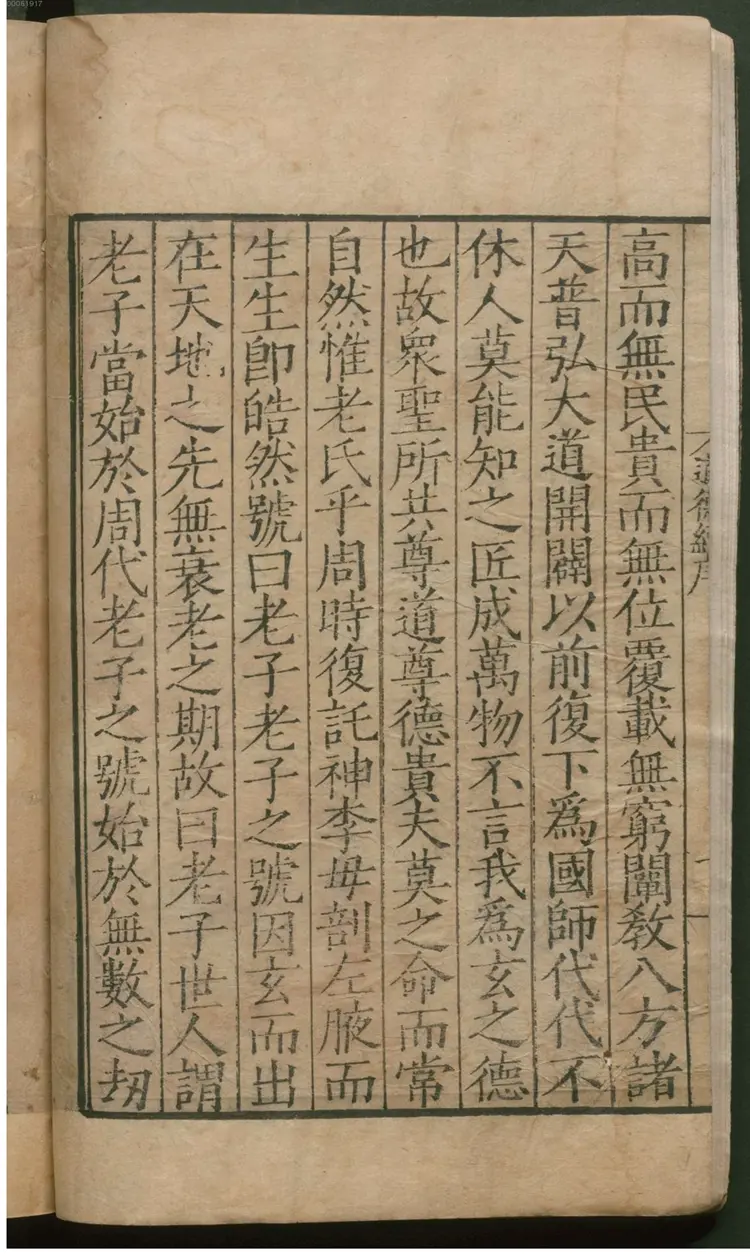 00061917
道德經序
高而無民貴而無位覆載無窮闡教八方諸
天普弘大道開闢以前復下為國師代代不
休人莫能知之匠成萬物不言我為玄之德
也故衆聖所共尊道尊德貴夫莫之命而常
自然惟老氏乎周時復託神李母剖左腋而
生生即皓然號曰老子老子之號因玄而出
在天地之先無衰老之期故曰老子世人謂
老子當始於周代老子之號始於無數之刼